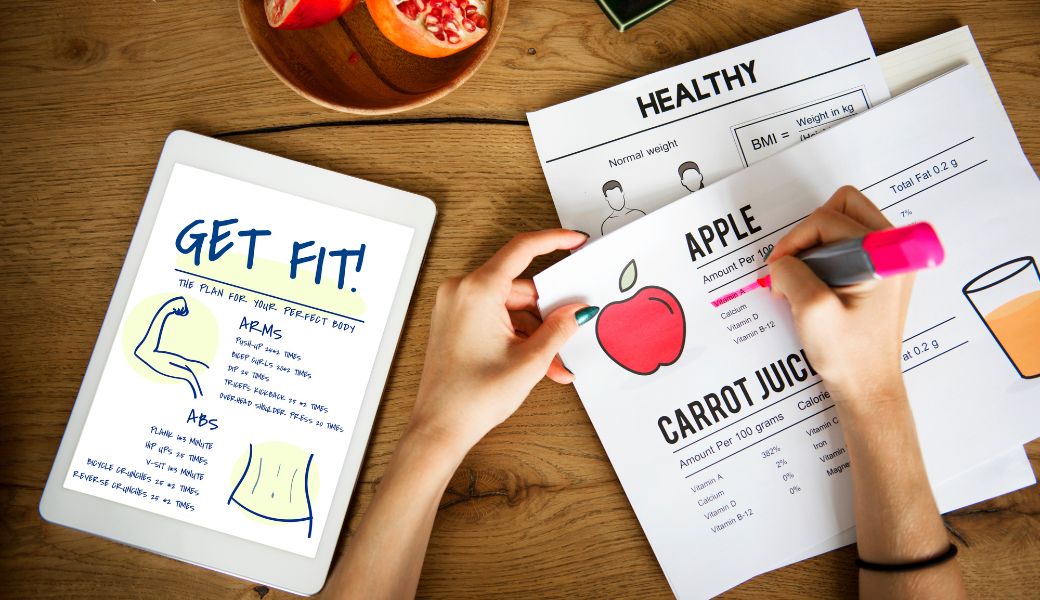 GET FIT!
THE PLAN FOR YOUR PERFECT BODY
ARMS
PUSH-UP 25*2 TIMES
BICEP CURLS 20*2 TIMES
DIP 25 TIMES
TRICEPS KICKBACK 25 *2 TIMES
OVERHEAD SHOULDER PRESS 20 TIMES
ABS
PLANK 1*3 MINUTE
HIP UPS 25 TIMES
V-SIT 1*3 MINUTE
BICYCLE CRUNCHES 25 *2 TIMES
REVERSE CRUNCHES 25 *2 TIMES
HEALTHY
Normal weight
BMI = Weight in kg
APPLE
Total Fat 0.2 g
Amount Per 100
7%
Vitamin A
Calcium
Vitamin D
Vitamin B-12
CARROT JUICE
at 0.2 g
Amount Per 100 grams Calorie
Vitamin A 382%
Calcium 2%
Vitamin D 0%
Vitamin B-12 0%
Vitamin C
Iron
Vitamin
Magne